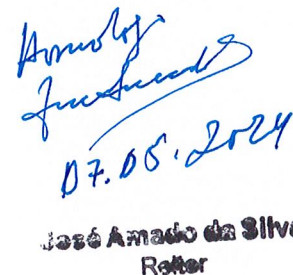 Homologo
07.05.2024
José Amado da Silva
Reitor